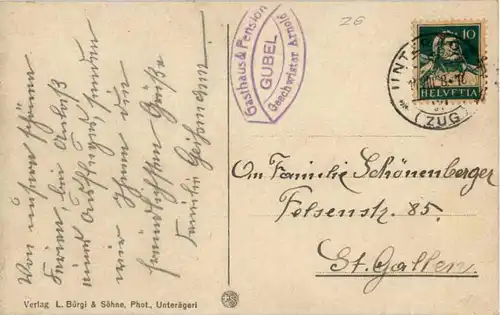 Von unsere schönen
Ferien, bei Anlaß
eines Ausfluges, senden
wir Ihnen die
freundlichsten Grüße
Familie
Gasthaus & Pension
GUBEL
Geschwister Arnold
26
10
HELVETIA
UNTE
(ZUG)
An Familie Schönenberger
Felsenstr. 85.
St. Gallen.
Verlag L. Bürgi & Söhne, Phot., Unterägeri